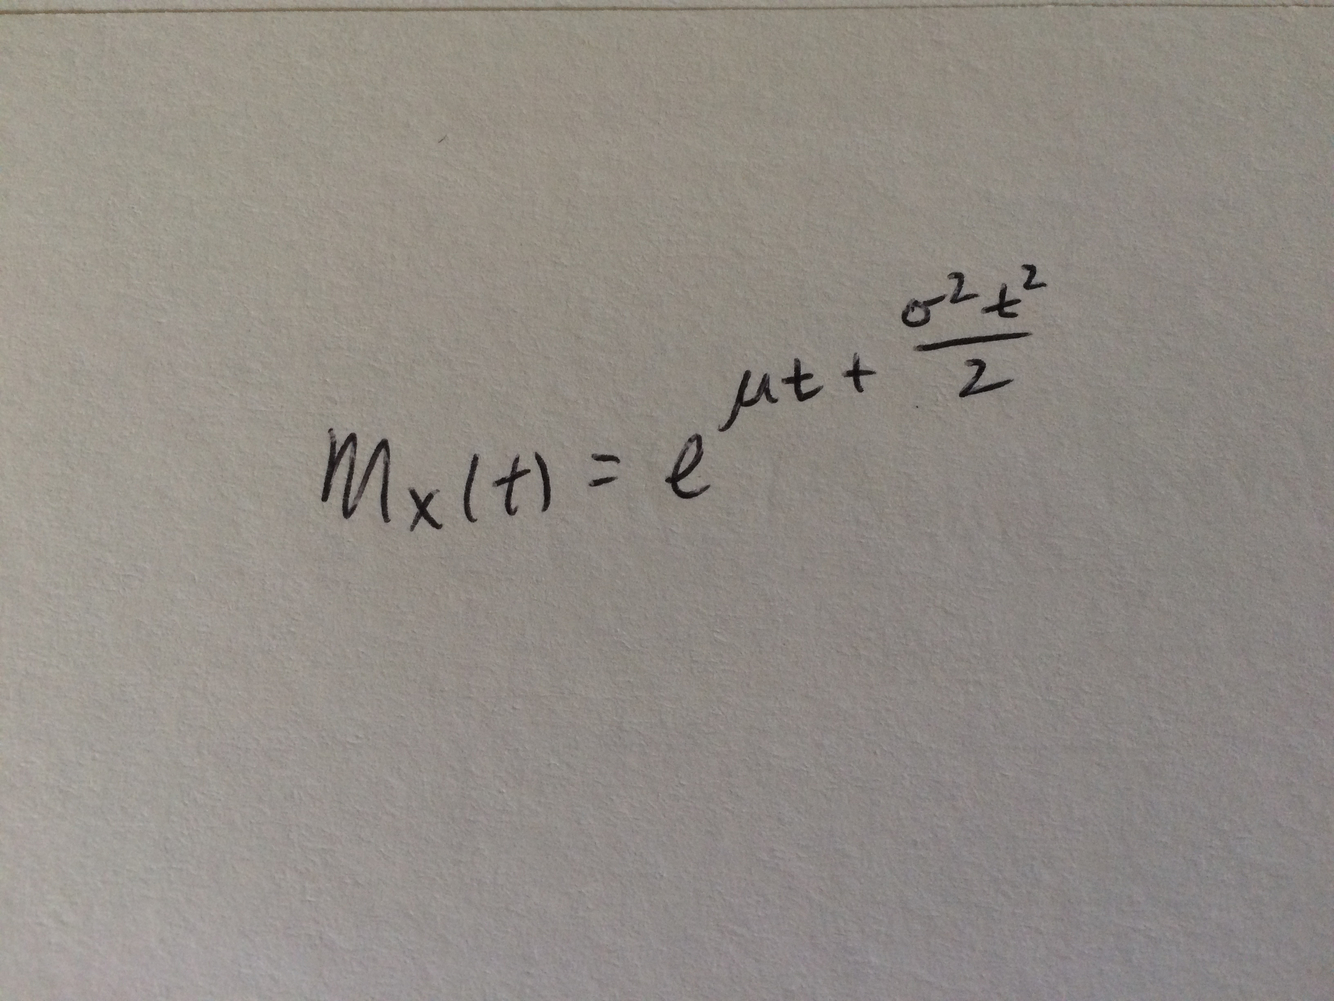 M_X(t) = e^{μt + \frac{σ^2 t^2}{2}}